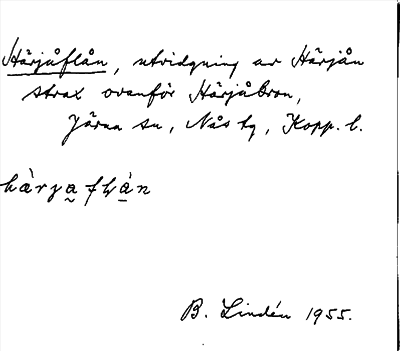 Härjåflån, utvidgning av Härjån
strax ovanför Härjåbron,
Järna sn, Nås tg, Kopp. l.
B. Lindén 1955.